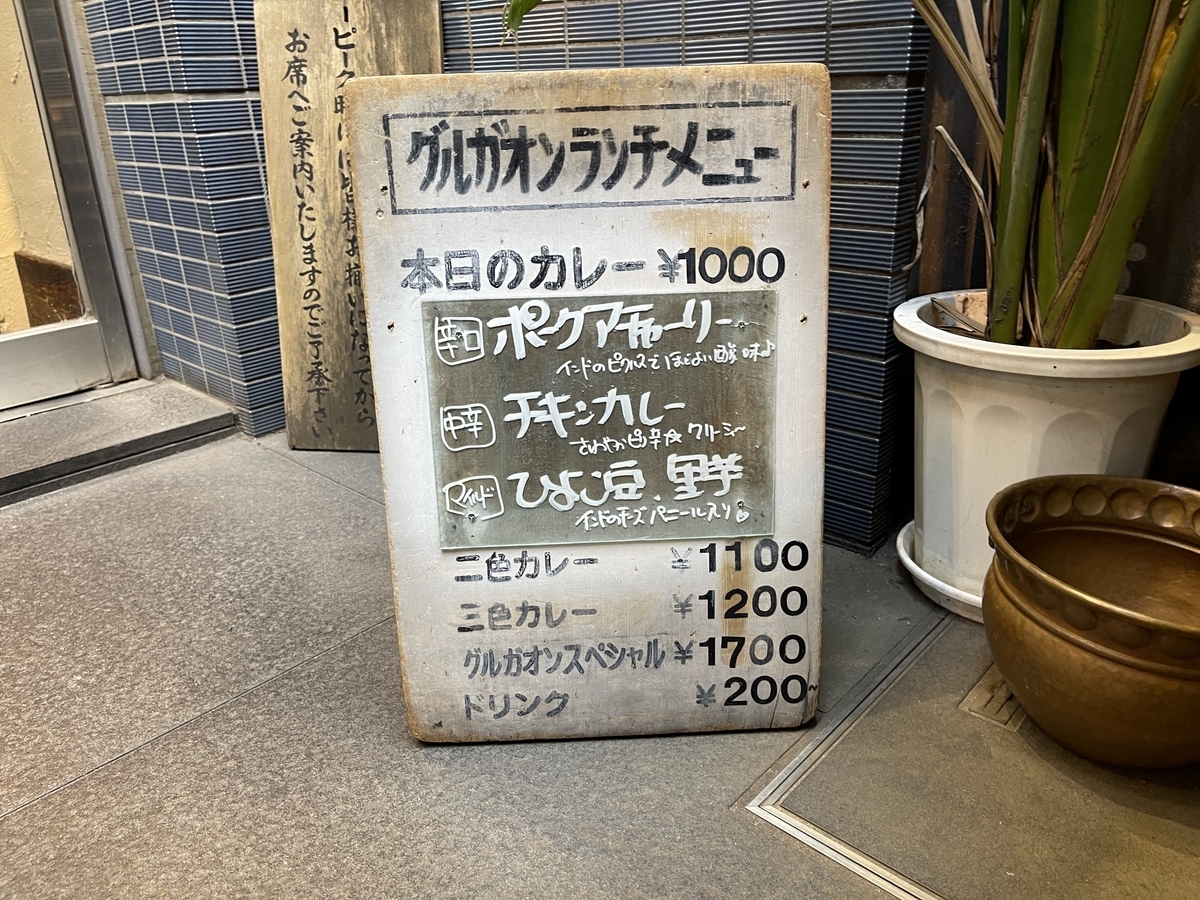 ピーク時には皆様お揃いになってから
お席へご案内いたしますのでご了承下さい
グルガオンランチメニュー
本日のカレー ¥1000
辛口 ポークアチャーリー
インドのピクルスでほどよい酸味♪
中辛 チキンカレー
さわやか クリーミー
マイルド ひよこ豆、
インドのチーズ パニール入り
二色カレー ¥1100
三色カレー ¥1200
グルガオンスペシャル ¥1700
ドリンク ¥200~